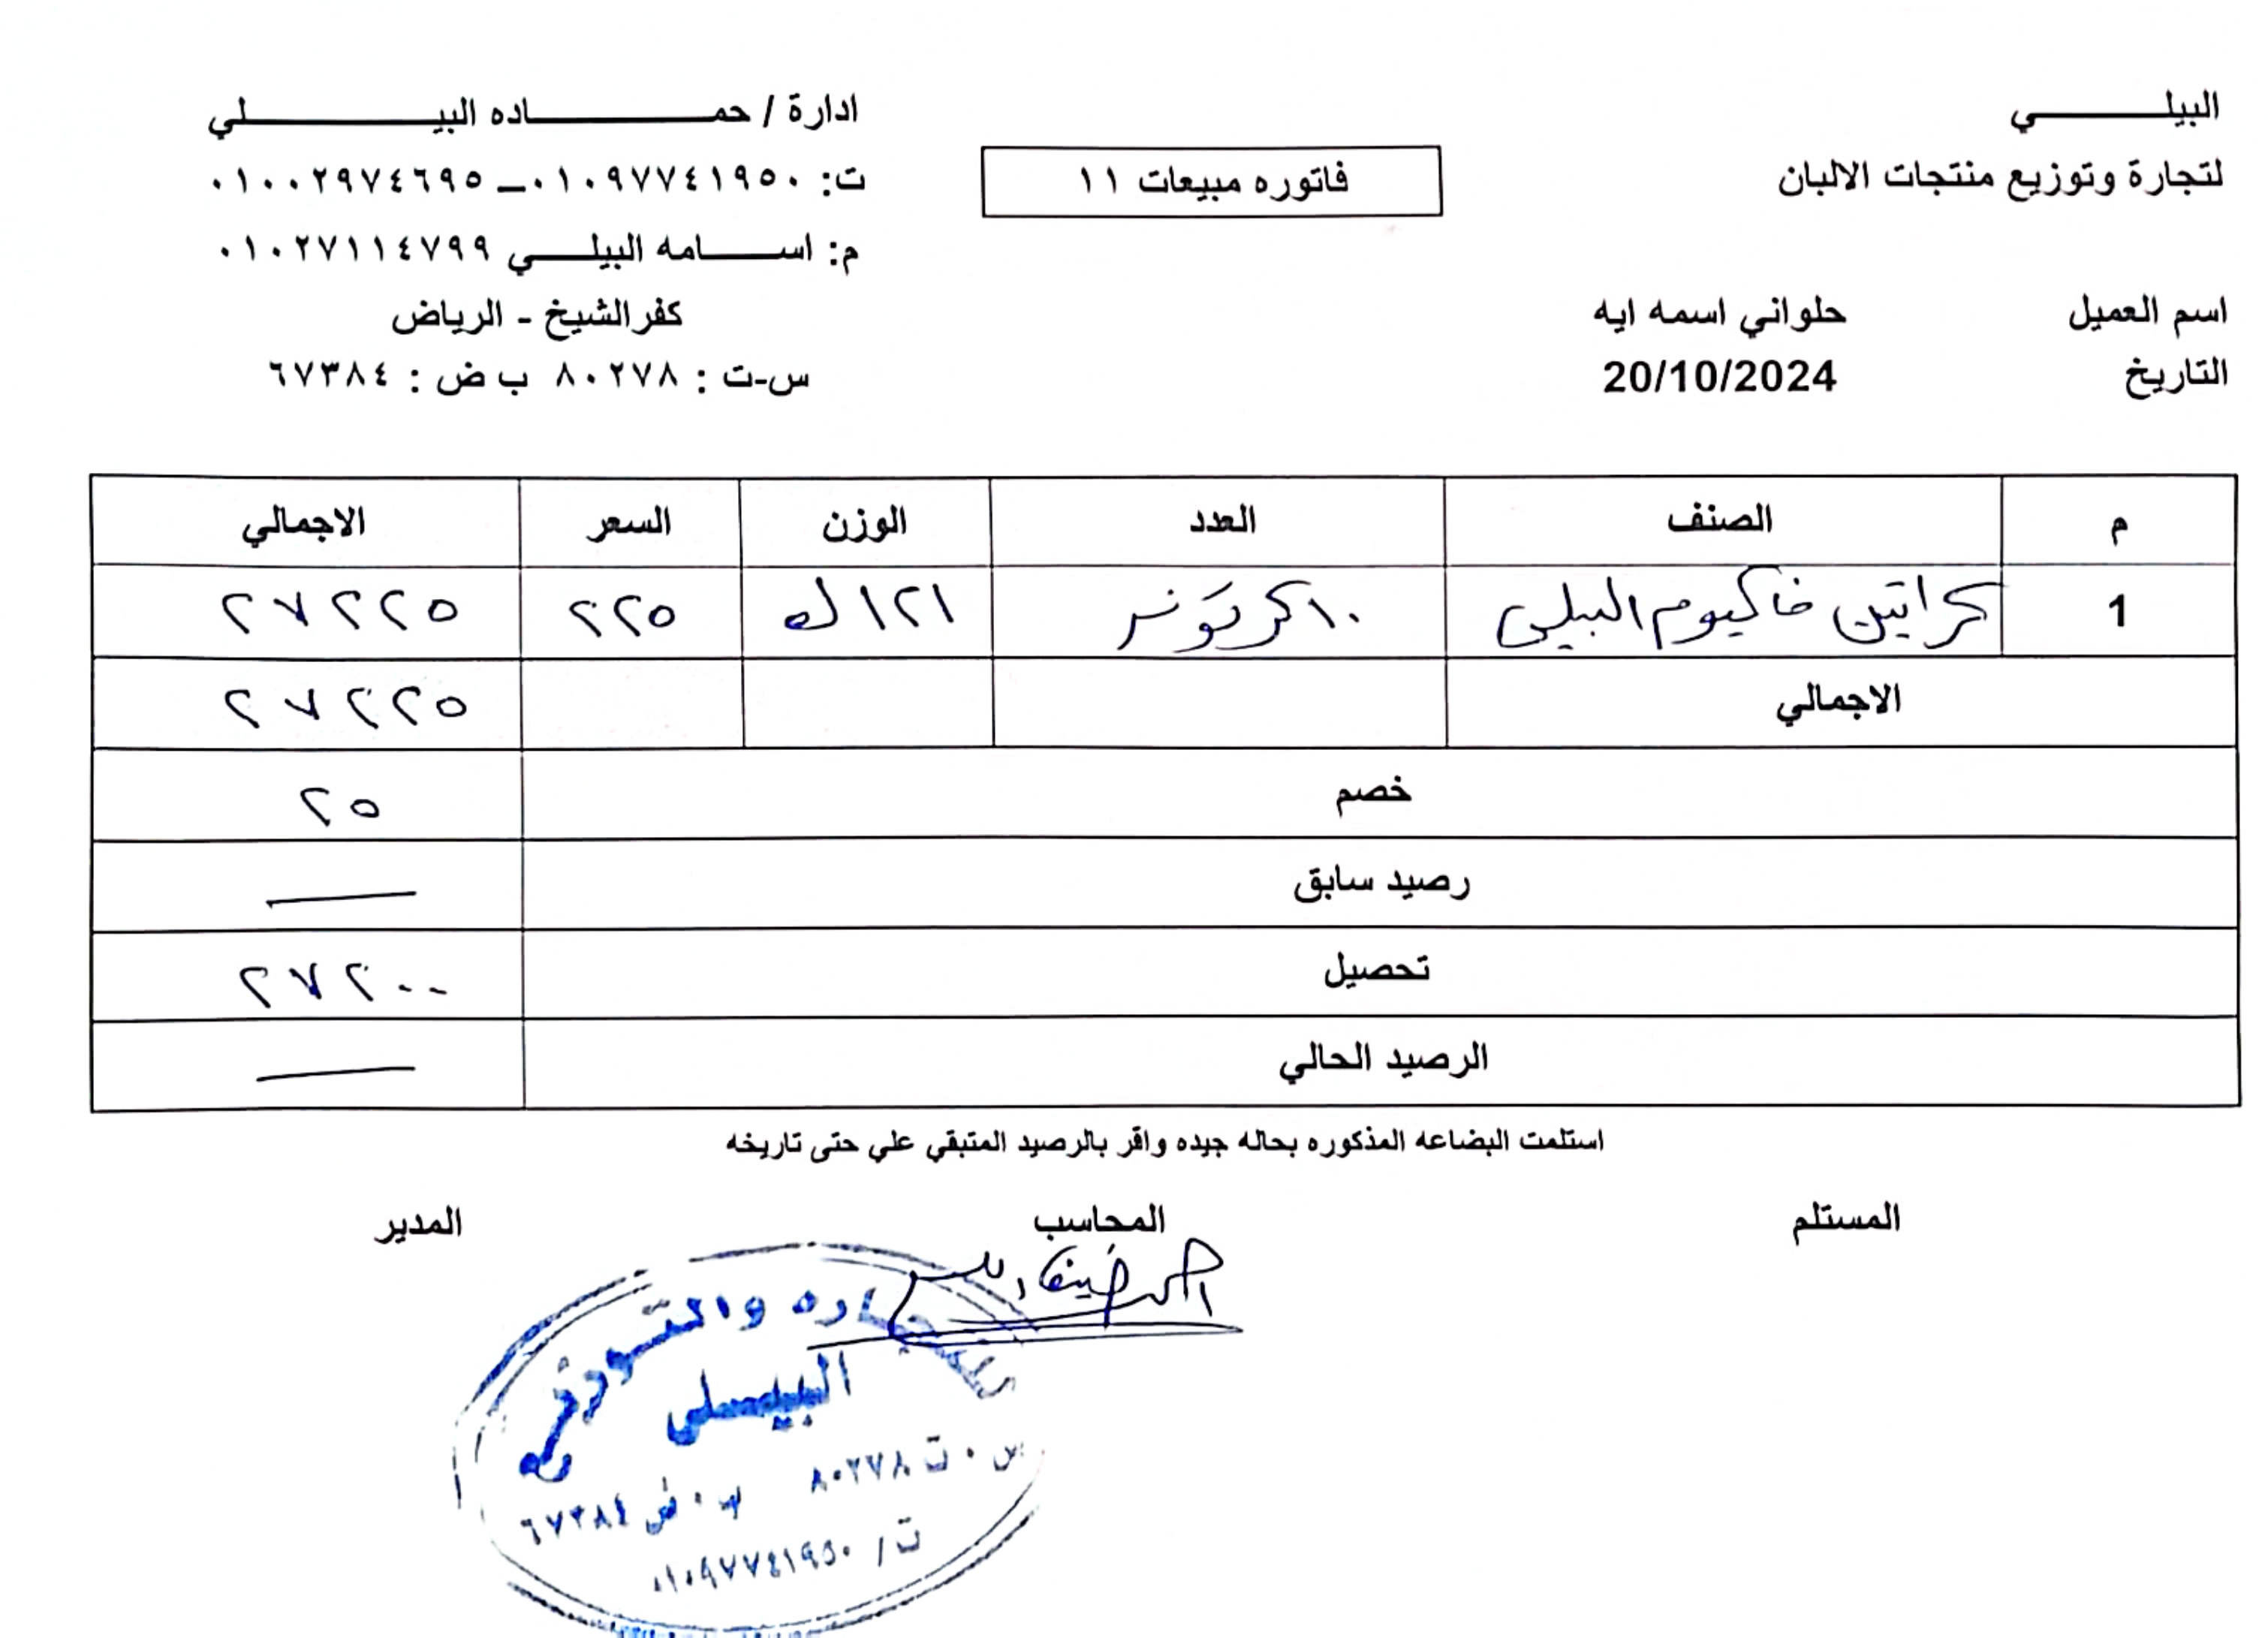 البيلي
لتجارة وتوزيع منتجات الالبان
فاتوره مبيعات ١١
ادارة / حماده البيلي
ت: ٠١٠٩٧٧٤١٩٥٠ – ٠١٠٠٢٩٧٤٦٩٥
م: اسامه البيلي ٠١٠٢٧١١٤٧٩٩
كفرالشيخ - الرياض
س-ت : ٨٠٢٧٨ ب ض : ٦٧٣٨٤
اسم العميل حلواني اسمه ايه
التاريخ 20/10/2024
م الصنف العدد الوزن السعر الاجمالي
1 كراتين فاكيوم البيلي ١٠ كرتونه ١٢١ ك ٢٢٥ ٢٧٢٢٥
الاجمالي ٢٧٢٢٥
خصم ٢٥
رصيد سابق —
تحصيل ٢٧٢٠٠
الرصيد الحالي —
استلمت البضاعه المذكوره بحاله جيده واقر بالرصيد المتبقي علي حتى تاريخه
المستلم المحاسب المدير
للتجاره والتوزيع
البيلى
س.ت ٨٠٢٧٨ ب.ض ٦٧٣٨٤
ت / ٠١٠٩٧٧٤١٩٥٠